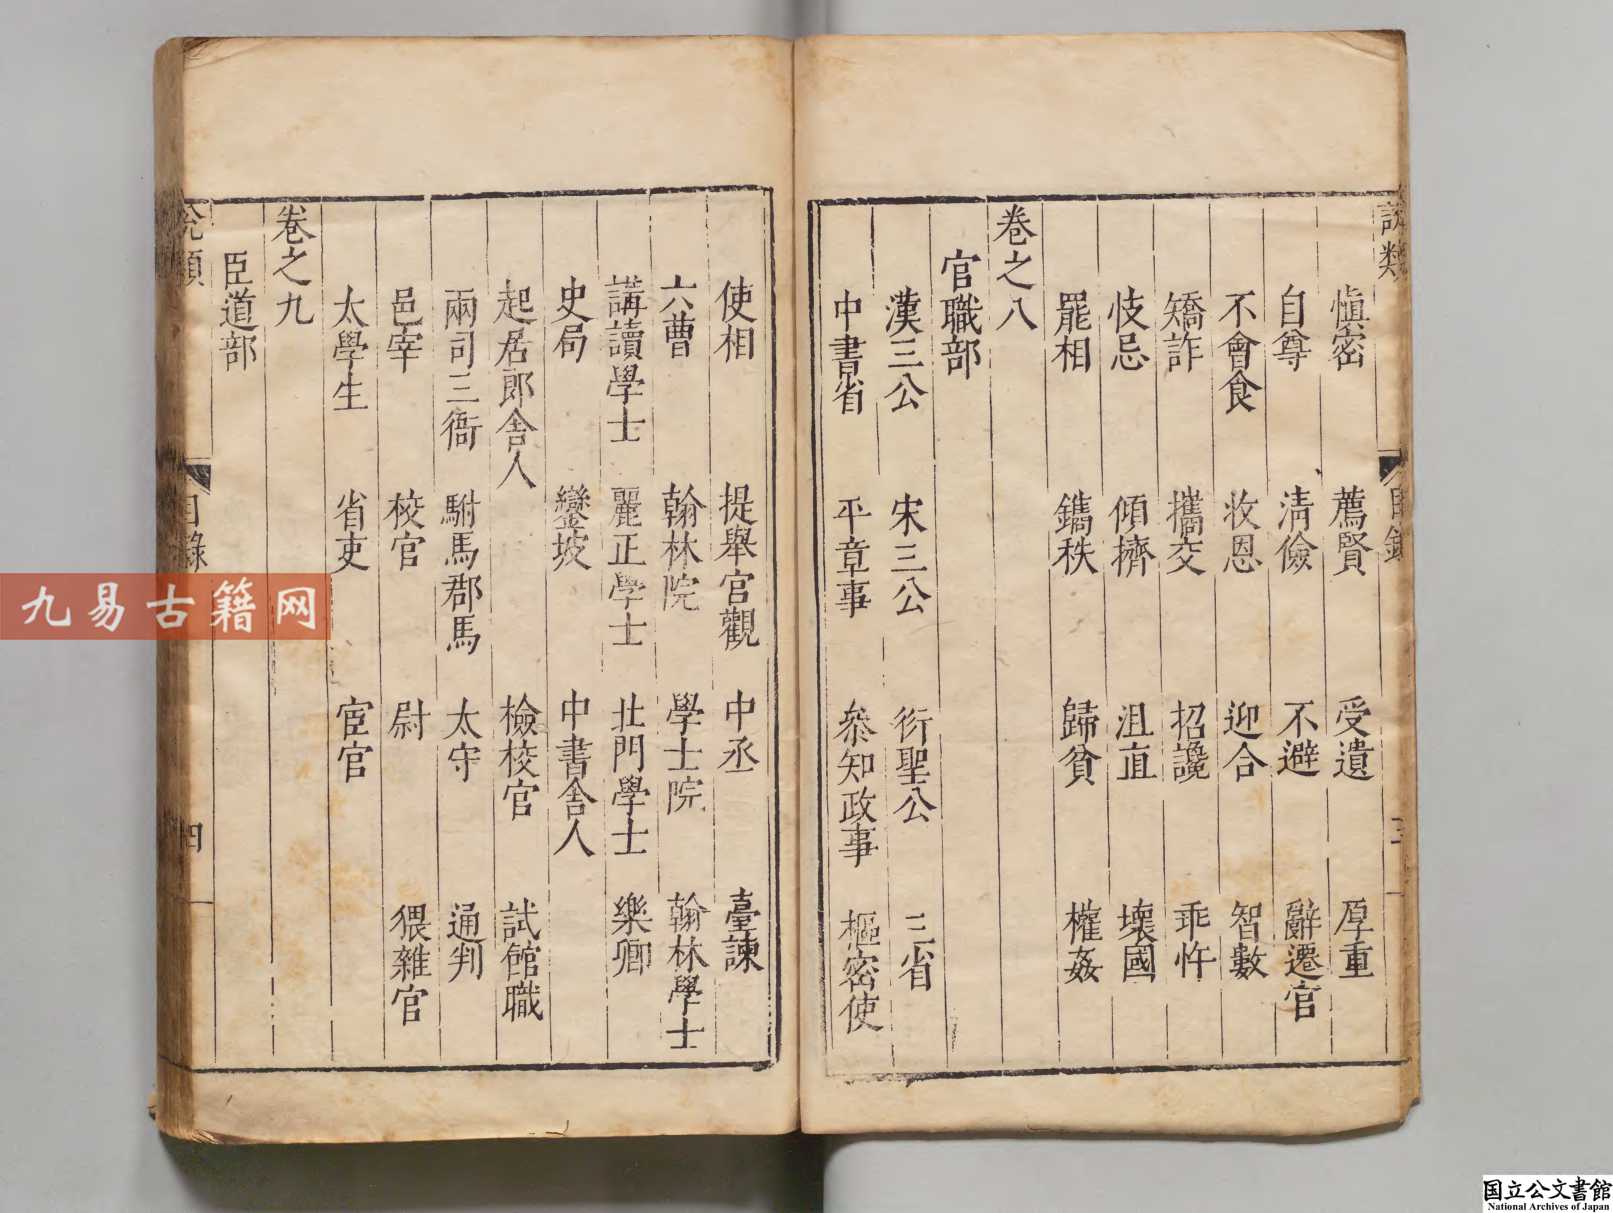 說類
目錄
三
慎密 薦賢 受遺 厚重
自尊 清儉 不避 辭遷官
不會食 收恩 迎合 智數
矯詐 攜交 招讒 乖忤
忮忌 傾擠 沮直 壞國
罷相 鐫秩 歸貧 權姦
卷之八
官職部
漢三公 宋三公 衍聖公 三省
中書省 平章事 叅知政事 樞密使
使相 提舉官觀 中丞 臺諫
六曹 翰林院 學士院 翰林學士
講讀學士 麗正學士 北門學士 樂卿
史局 鑾坡 中書舍人
起居郎舍人 檢校官 試館職
兩司三衙 駙馬郡馬 太守 通判
邑宰 校官 尉 猥雜官
太學生 省吏 宦官
卷之九
臣道部
目錄
四
九易古籍网
国立公文書館
National Archives of Japan